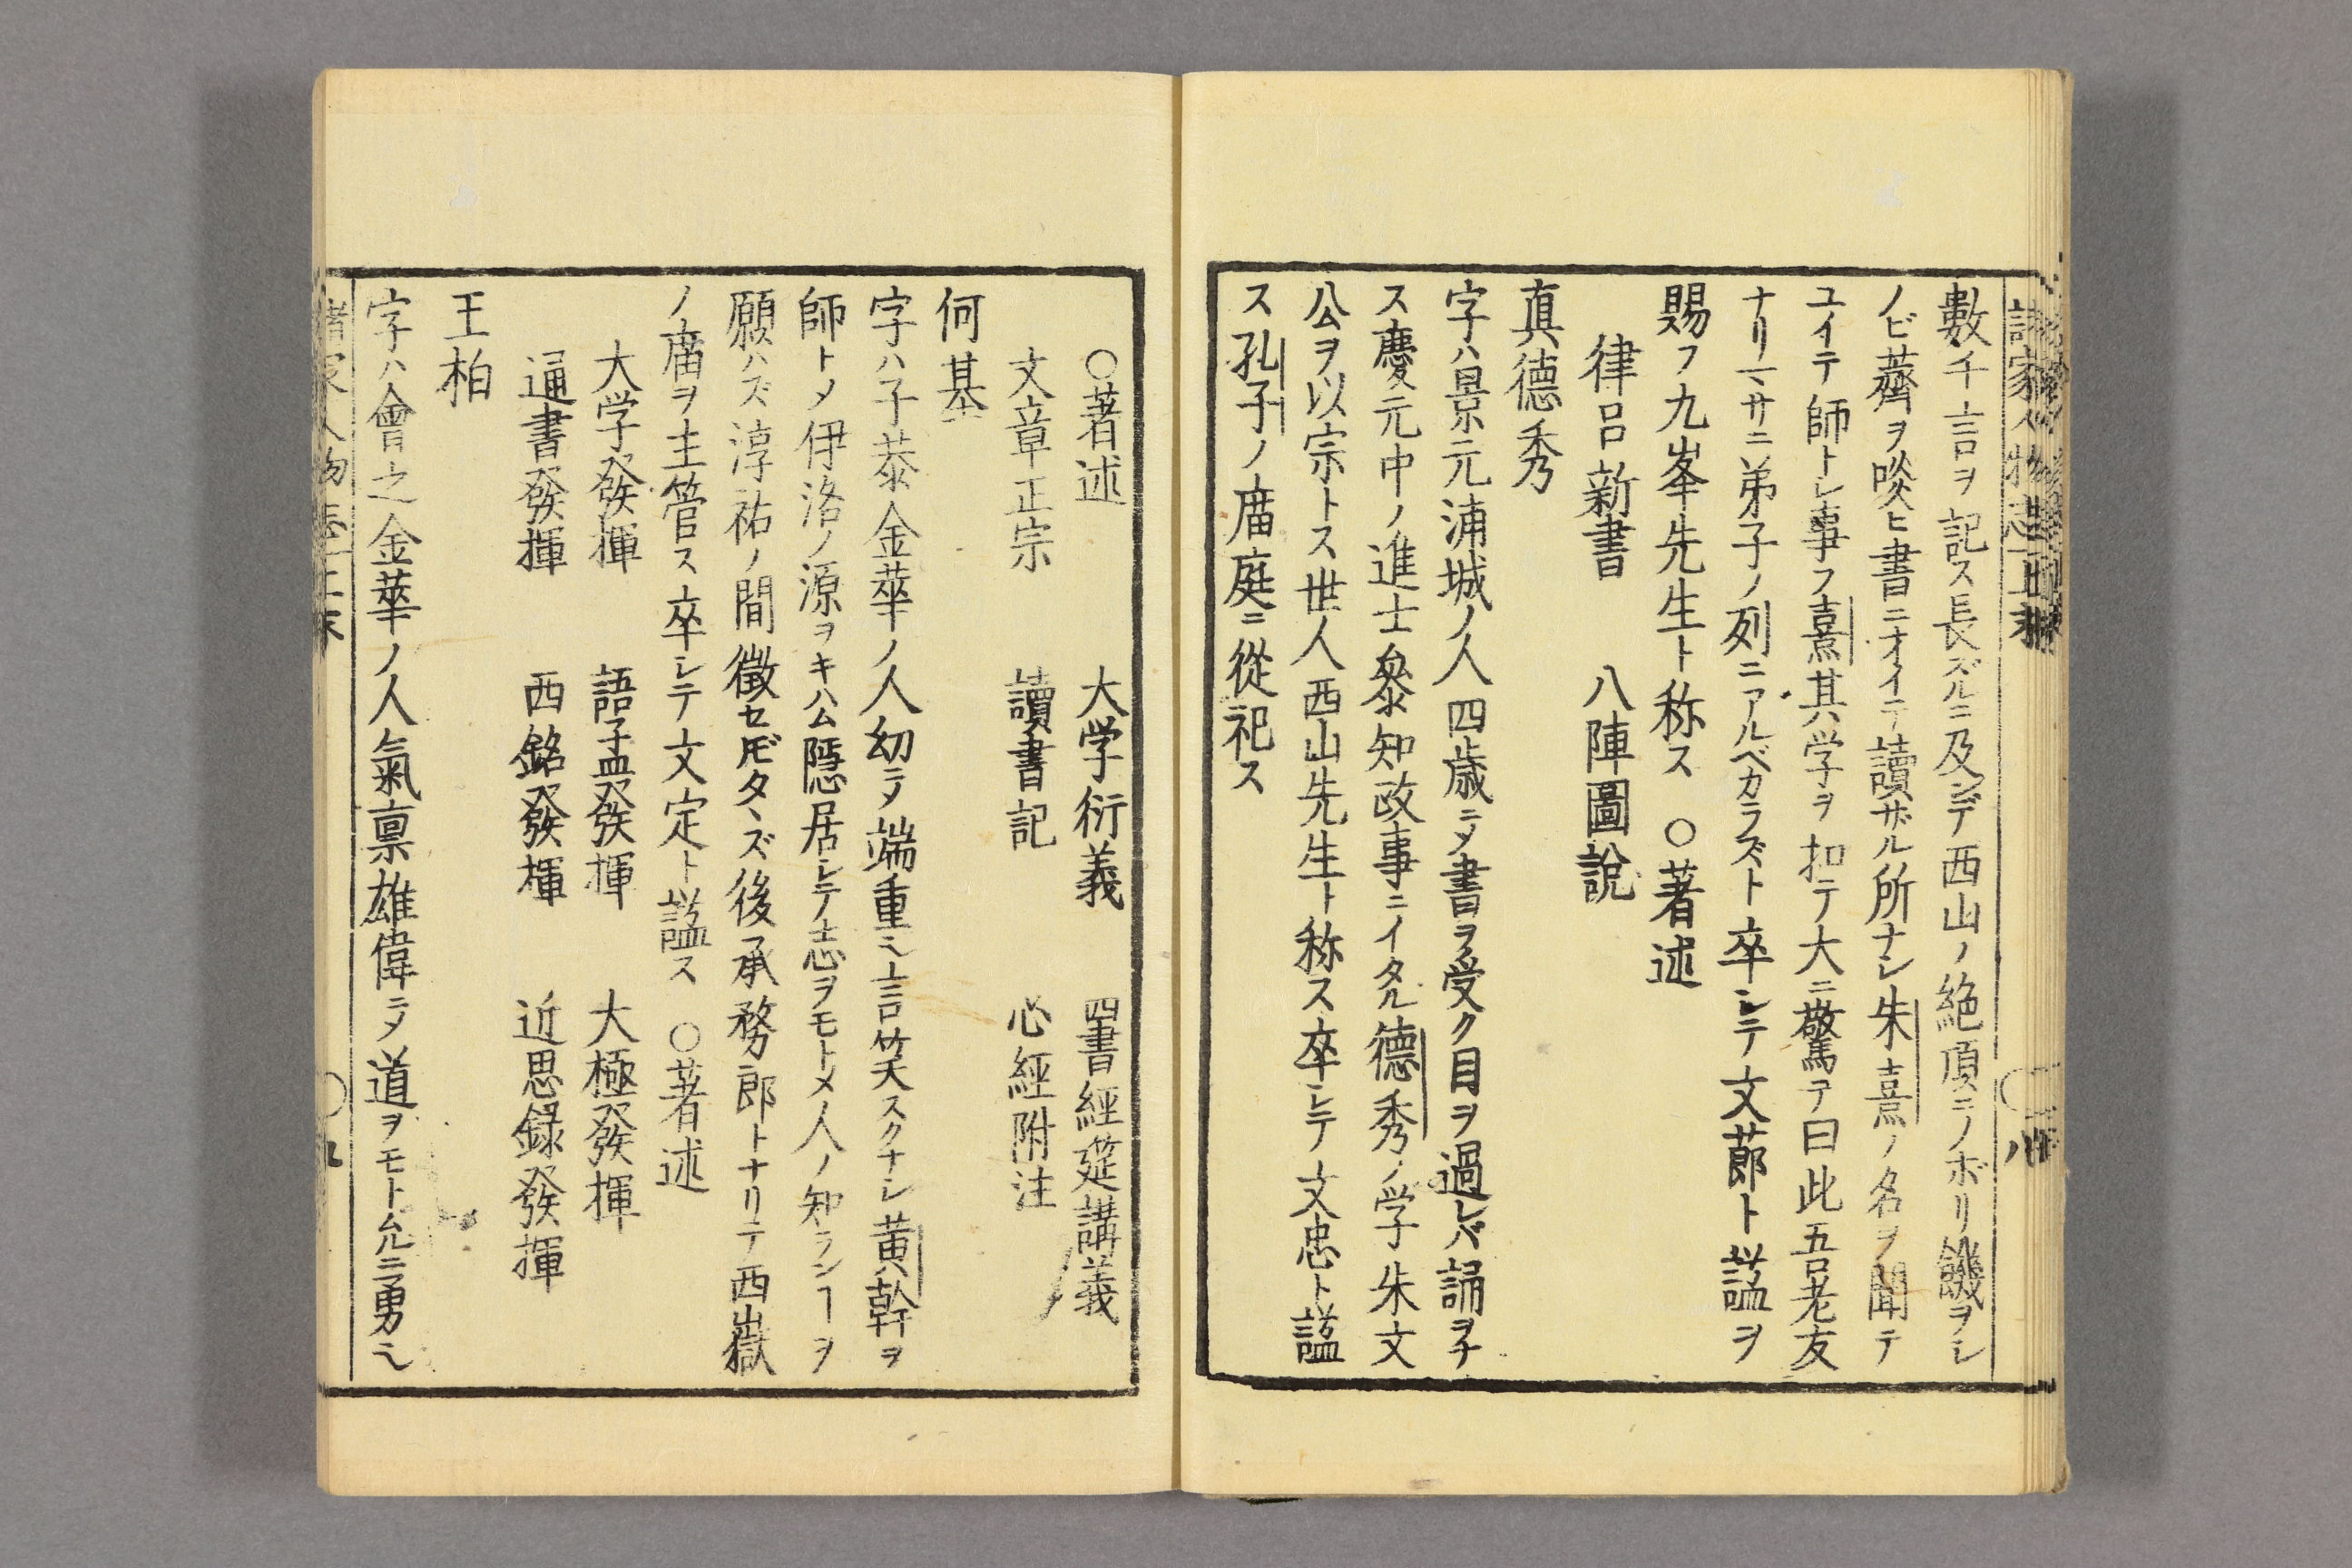 諸家人物志
數千言ヲ記ス長ズルニ及ンデ西山ノ絶頂ニノボリ饑ヲシ
ノビ薺ヲ啖ヒ書ニオイテ讀ザル所ナシ朱熹ノ名ヲ聞テ
ユイテ師トシ事フ熹其学ヲ扣テ大ニ驚テ曰此吾老友
ナリマサニ弟子ノ列ニアルベカラズト卒シテ文莭ト諡ヲ
賜フ九峯先生ト称ス ○著述
律呂新書 八陣圖說
真德秀
字ハ景元浦城ノ人四歳ニメ書ヲ受ク目ヲ過レバ誦ヲナ
ス慶元中ノ進士參知政事ニイタル德秀ノ学朱文
公ヲ以宗トス世人西山先生ト称ス卒シテ文忠ト諡
ス孔子ノ庿庭ニ從祀ス
○著述 大学衍義 四書經筵講義
文章正宗 讀書記 心經附注
何基
字ハ子恭金華ノ人幼ニ乄端重乄言笑スクナシ黄幹ヲ
師トメ伊洛ノ源ヲキハム隱居シテ志ヲモトメ人ノ知ランヿヲ
願ハズ淳祐ノ間徴セドモタヽズ後承務郎トナリテ西嶽
ノ庿ヲ主管ス卒シテ文定ト諡ス ○著述
大学發揮 語孟發揮 大極發揮
通書發揮 西銘發揮 近思錄發揮
王柏
字ハ會之金華ノ人氣禀雄偉ニメ道ヲモトムルニ勇乄